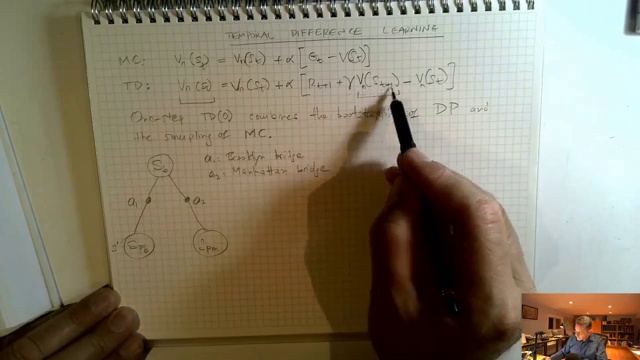 TEMPORAL DIFFERENCE LEARNING
MC: Vπ(St) = Vπ(St) + α [Gt − V(St)]
TD: Vπ(St) = Vπ(St) + α [Rt+1 + γVπ(St+1) − Vπ(St)]
One-step TD(0) combines the of DP and
the sampling of MC.
S0
a1: Brooklyn bridge
a2: Manhattan bridge
a1 a2
s'